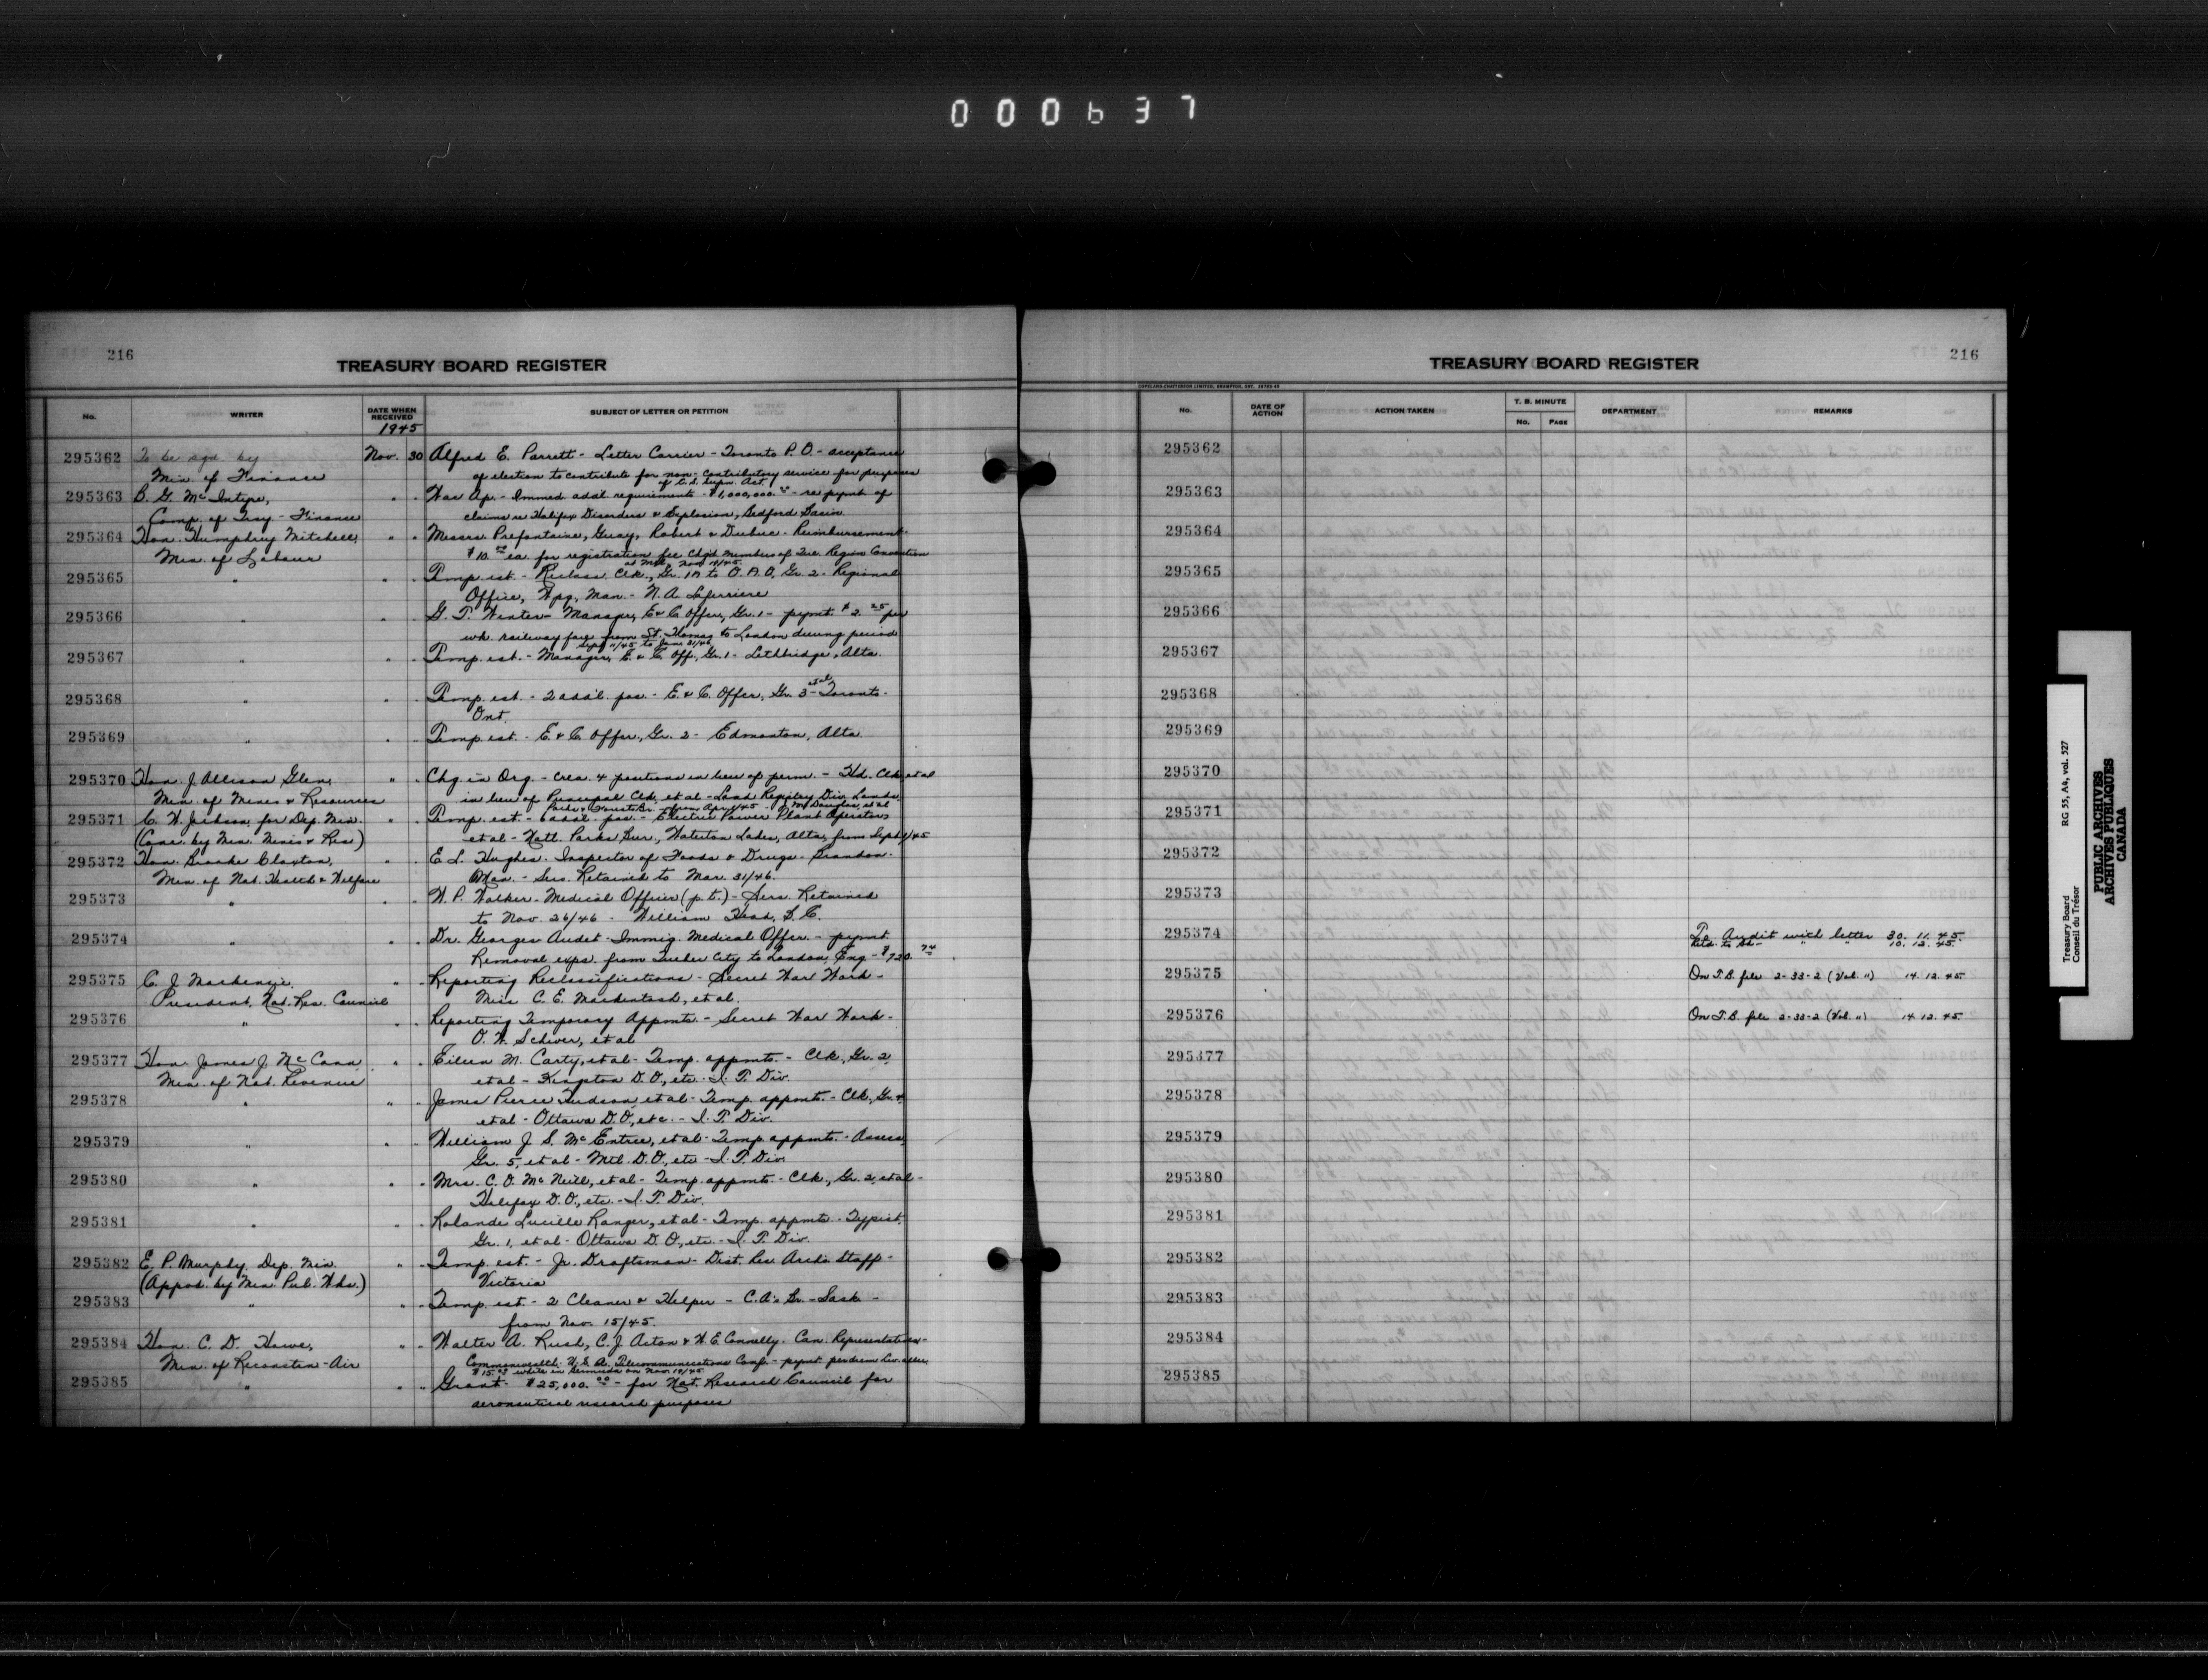 000637
216
TREASURY BOARD REGISTER
No.
WRITER
DATE WHEN RECEIVED
SUBJECT OF LETTER OR PETITION
1945
295362 To be sgd by Nov. 30 Alfred E. Parrett - Letter Carrier - Toronto P.O. - acceptance
Min. of Finance of election to contribute for non-contributory service for purposes
of C.S. Supn. Act.
295363 B. G. McIntyre, " " War Ap. - Immed. addl. requirements - $1,000,000.00 - re pymt of
Comp. of Trsy - Finance claims re Halifax Disorders & Explosion, Bedford Basin
295364 Hon. Humphrey Mitchell, " " Messrs. Prefontaine, Guay, Robert & Dubuc - Reimbursement
Min. of Labour $10.00 ea. for registration fee Chgd members of Que. Region Convention
at Mtl, Nov. 19/45
295365 " " " Temp. est. - Reclass. Clk., Gr. 1A to O.A.O., Gr. 2 - Regional
Office, Wpg, Man. - N. A. Laferriere
295366 " " " G. T. Winter - Manager, E & C. Offer, Gr. 1 - pymt. $2.25 per
wk. railway fare from St. Thomas to London during period
Sept. 11/45 to Jan. 31/46
295367 " " " Temp. est. - Manager, E. & C. Off., Gr. 1 - Lethbridge, Alta.
295368 " " " Temp. est. - 2 addl. pos. - E. & C. Offer, Gr. 3 et al - Toronto -
Ont.
295369 " " " Temp. est. - E. & C. Offer., Gr. 2 - Edmonton, Alta.
295370 Hon. J. Allison Glen, " " Chg. in Org. - Crea. 4 positions in lieu of perm. - Hd. Clk, et al
Min. of Mines & Resources in lieu of Principal Clk, et al - Land Registry Div. Lands,
Parks & Forests Br. - from Apr. 1/45 - J. McDouglas, et al
295371 C. W. Jackson, for Dep. Min. " " Temp. est. - 6 addl. pos. - Electric Power Plant Operators
(Conc. by Min. Mines & Res) et al - Natl. Parks Bur., Waterton Lakes, Alta, from Sept. 1/45
295372 Hon. Brooke Claxton, " " E. L. Hughes - Inspector of Foods & Drugs - Brandon -
Min. of Nat. Health & Welfare Man. - Sers. Retained to Mar. 31/46.
295373 " " " W. P. Walker - Medical Officer (p.t.) - Sers. Retained
to Nov. 26/46 - William Head, B.C.
295374 " " " Dr. Georges Audet - Immig. Medical Offer. - pymt.
Removal exps. from Quebec City to London, Eng - $720.74
295375 C. J. Mackenzie, " " Reporting Reclassifications - Secret War Work -
President, Nat. Res. Council Miss C. E. Mackintosh, et al.
295376 " " " Reporting Temporary Appmts. - Secret War Work -
O. W. Schiver, et al
295377 Hon. James J. McCann, " " Eileen M. Carty, et al - Temp. appmts. - Clk, Gr. 2,
Min. of Nat. Revenue et al - Kingston D.O., etc. - I. T. Div.
295378 " " " James Pierce Hudson, et al - Temp. appmts. - Clk, Gr. 4,
et al - Ottawa D.O., etc. - I. T. Div.
295379 " " " William J. S. McEntree, et al - Temp. appmts. - Assess.
Gr. 5, et al - Mtl. D.O., etc - I. T. Div.
295380 " " " Mrs. C. O. McNeill, et al - Temp. appmts. - Clk., Gr. 2, et al -
Halifax D.O., etc. - I. T. Div.
295381 " " " Rolande Lucille Ranger, et al - Temp. appmts. - Typist,
Gr. 1, et al - Ottawa D.O., etc. - I. T. Div.
295382 E. P. Murphy, Dep. Min. " " Temp. est. - Jr. Draftsman - Dist. Res Archs Staff -
(Appvd. by Min. Pub. Wks.) Victoria
295383 " " " Temp. est. - 2 Cleaner & Helper - C.A's Br. - Sask -
from Nov. 15/45.
295384 Hon. C. D. Howe, " " Walter A. Rush, C. J. Acton & W. E. Connelly - Can. Representatives -
Min. of Reconstn - Air Commonwealth - U. S. A. Telecommunications Conf. - pymt. per diem liv. allce.
$15.00 while in Bermuda on Nov. 19/45
295385 " " " Grant - $25,000.00 - for Nat. Research Council for
aeronautical research purposes
TREASURY BOARD REGISTER
216
COPELAND-CHATTERSON LIMITED, BRAMPTON, ONT.
No.
DATE OF ACTION
ACTION TAKEN
T. B. MINUTE
No.
PAGE
DEPARTMENT
REMARKS
295362
295363
295364
295365
295366
295367
295368
295369
295370
295371
295372
295373
295374 To Audit with letter 30. 11. 45.
" " 10. 12. 45.
295375 On T.B. file 2-33-2 (Vol. 11) 14. 12. 45
295376 On T.B. file 2-33-2 (Vol. 11) 14. 12. 45.
295377
295378
295379
295380
295381
295382
295383
295384
295385
Treasury Board
Conseil du Trésor
RG 55, A4, vol. 527
PUBLIC ARCHIVES
ARCHIVES PUBLIQUES
CANADA